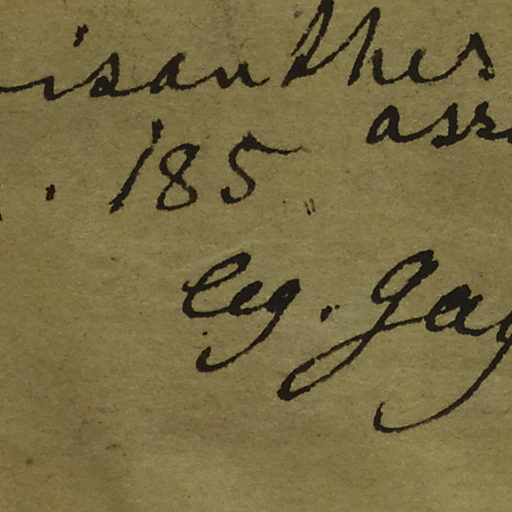 isanthes
ass
. 185
leg. Gag